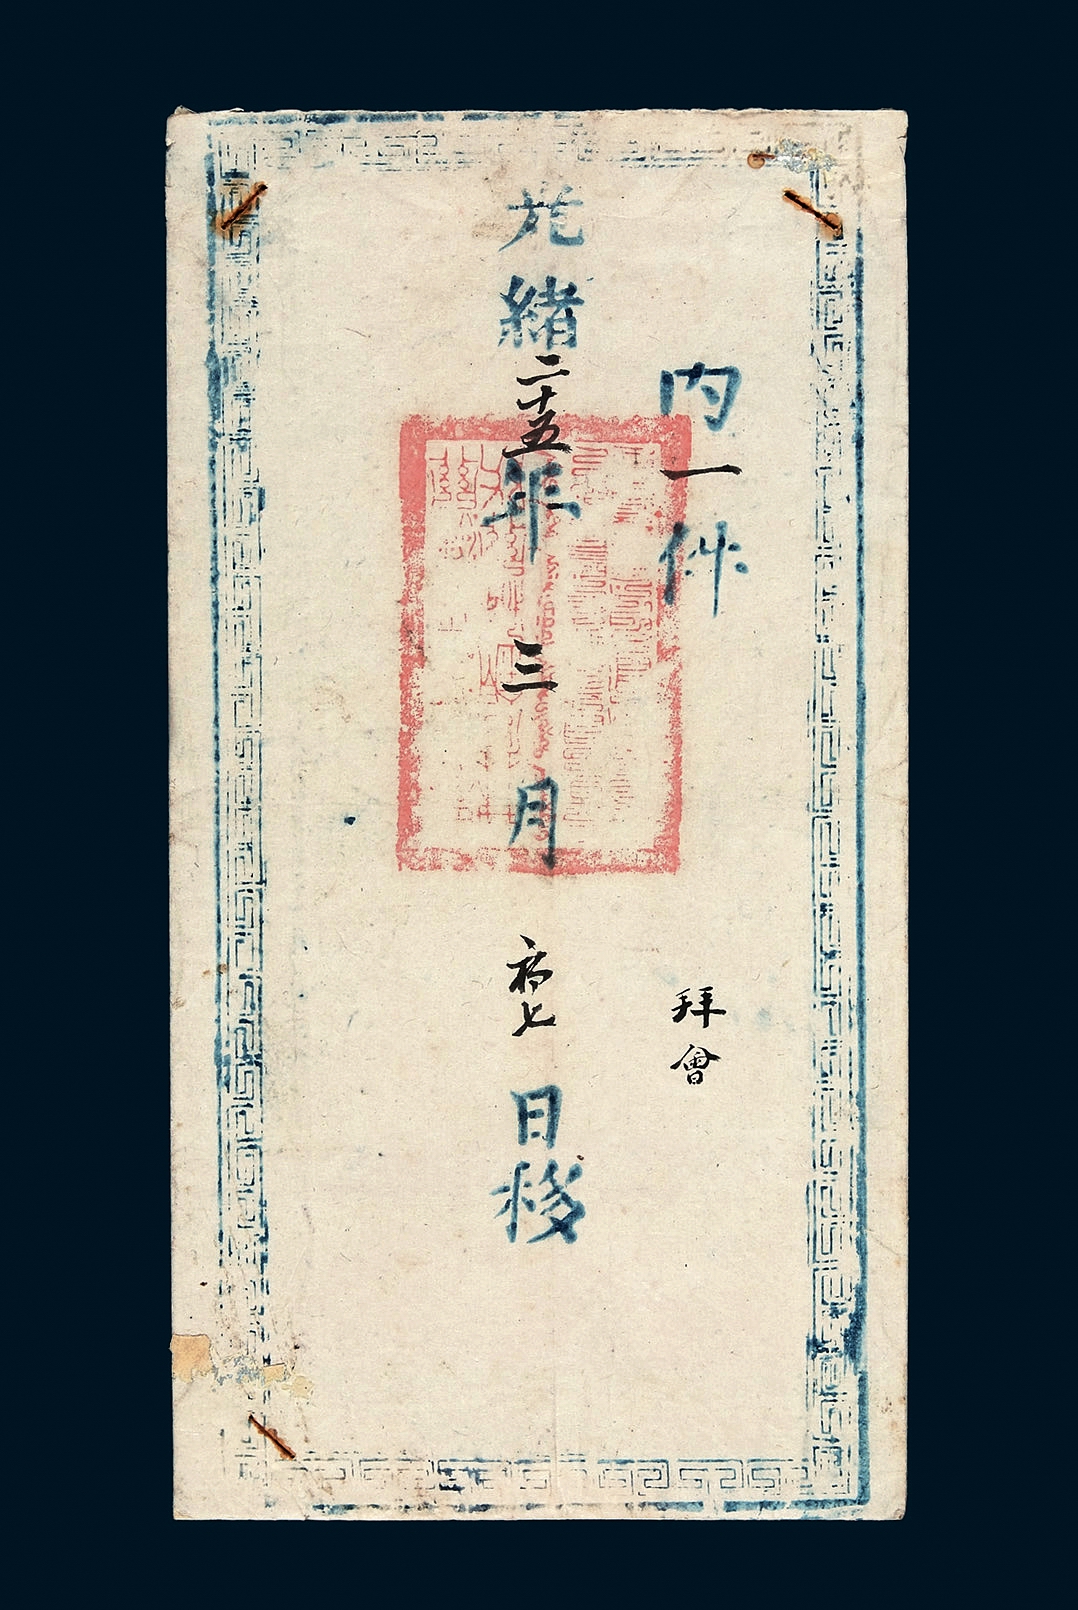 内一件
拜會
光緒二十五年三月初七日移